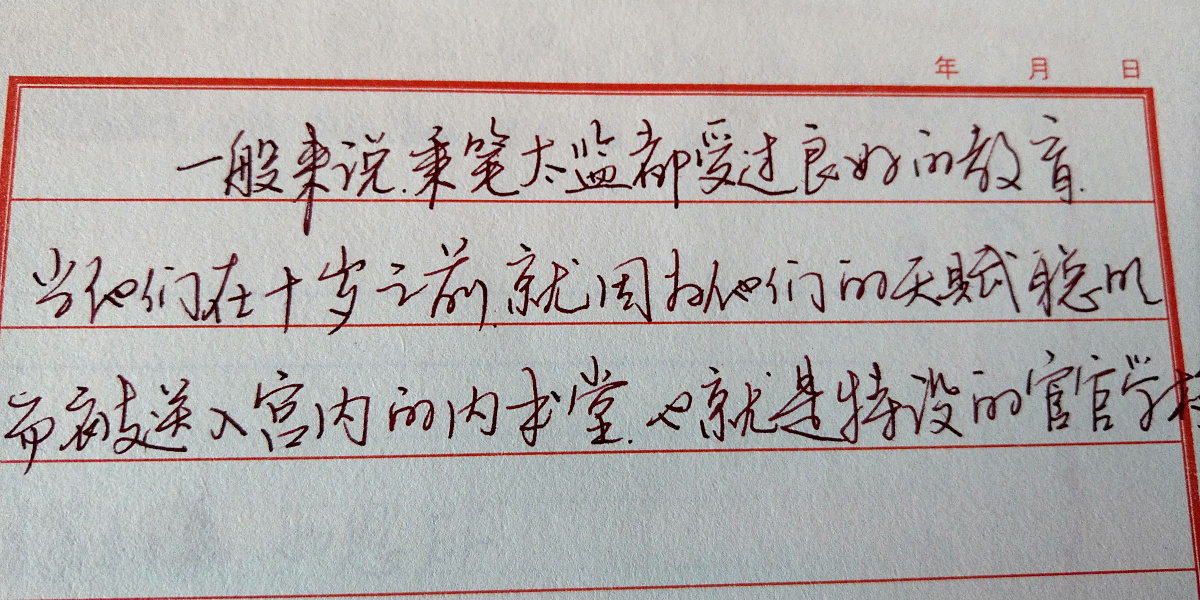 年 月 日
一般来说.秉笔太监都受过良好的教育.
当他们在十岁之前.就因为他们的天赋聪明
而被送入宫内的内书堂.也就是特设的宦官学校